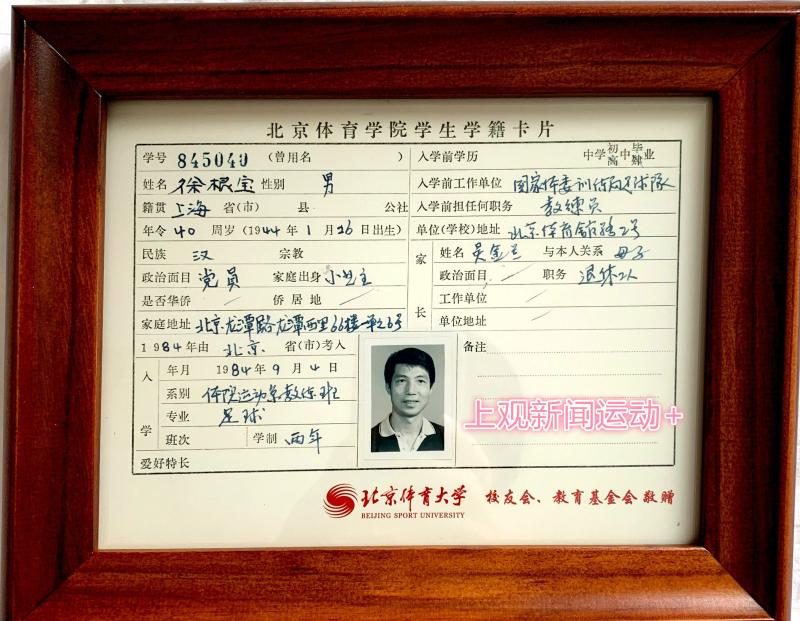 北京体育学院学生学籍卡片
学号 845040 (曾用名 )
姓名 徐根宝 性别 男
籍贯 上海 省(市) 县 公社
年令 40 周岁 (1944年1月16日出生)
民族 汉 宗教
政治面目 党员 家庭出身 小业主
是否华侨 侨居地
家庭地址 北京龙潭路龙潭西里66楼一单元6号
1984年由 北京 省(市)考入
入学
年月 1984年9月4日
系别 体院运动系教练班
专业 足球
班次 学制 两年
爱好特长
入学前学历 中学 初高 中 毕肄 业
入学前工作单位 国家体委训练局足球队
入学前担任何职务 教练员
单位(学校)地址 北京体育馆路2号
家长
姓名 吴金兰 与本人关系 母子
政治面目 职务 退休工人
工作单位
单位地址
备注
上观新闻运动+
北京体育大学 校友会、教育基金会敬赠
BEIJING SPORT UNIVERSITY